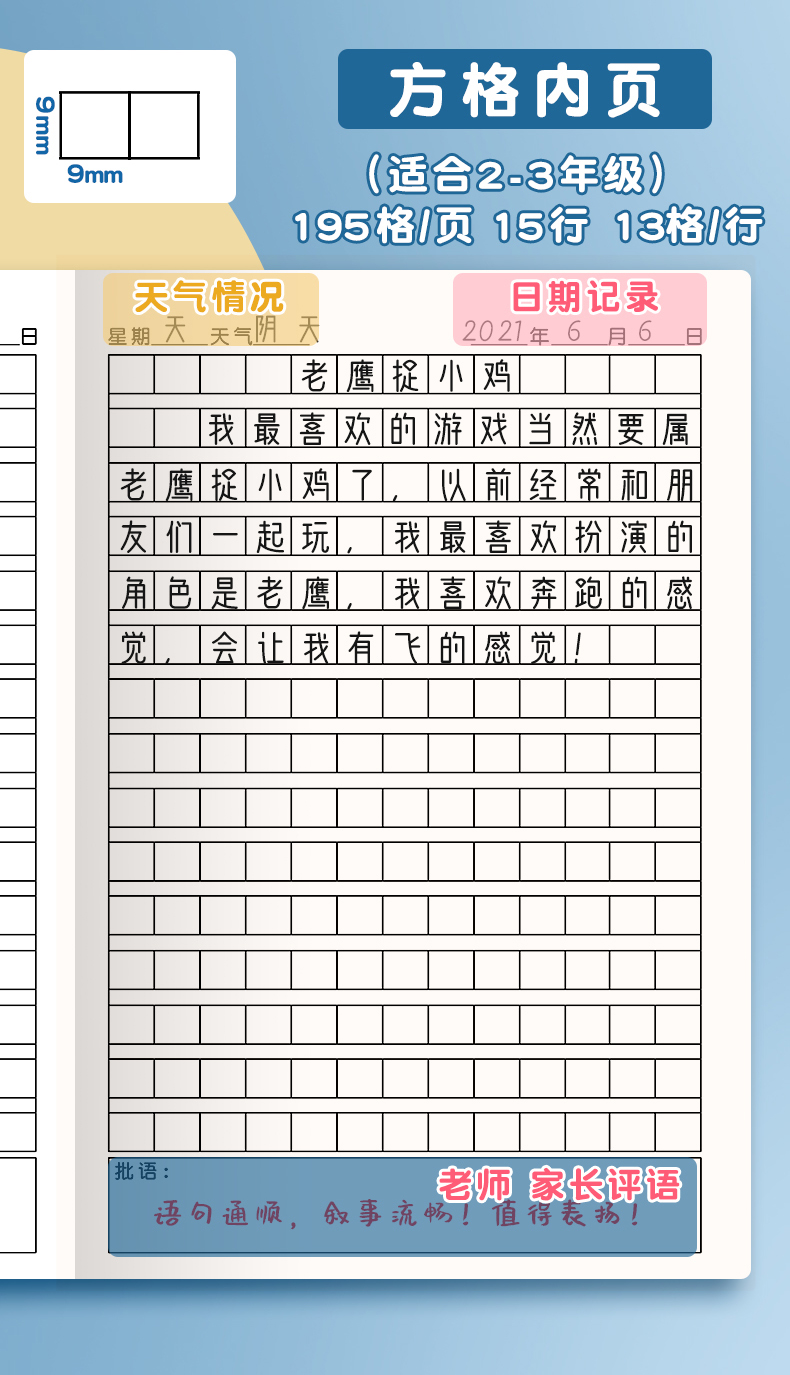 方格内页
9mm
9mm
（适合2-3年级）
195格/页 15行 13格/行
天气情况
日期记录
日
星期 天 天气 阴 天
2021年 6 月 6 日
老鹰捉小鸡
我最喜欢的游戏当然要属
老鹰捉小鸡了，以前经常和朋
友们一起玩，我最喜欢扮演的
角色是老鹰，我喜欢奔跑的感
觉，会让我有飞的感觉！
批语：
老师 家长评语
语句通顺，叙事流畅！值得表扬！